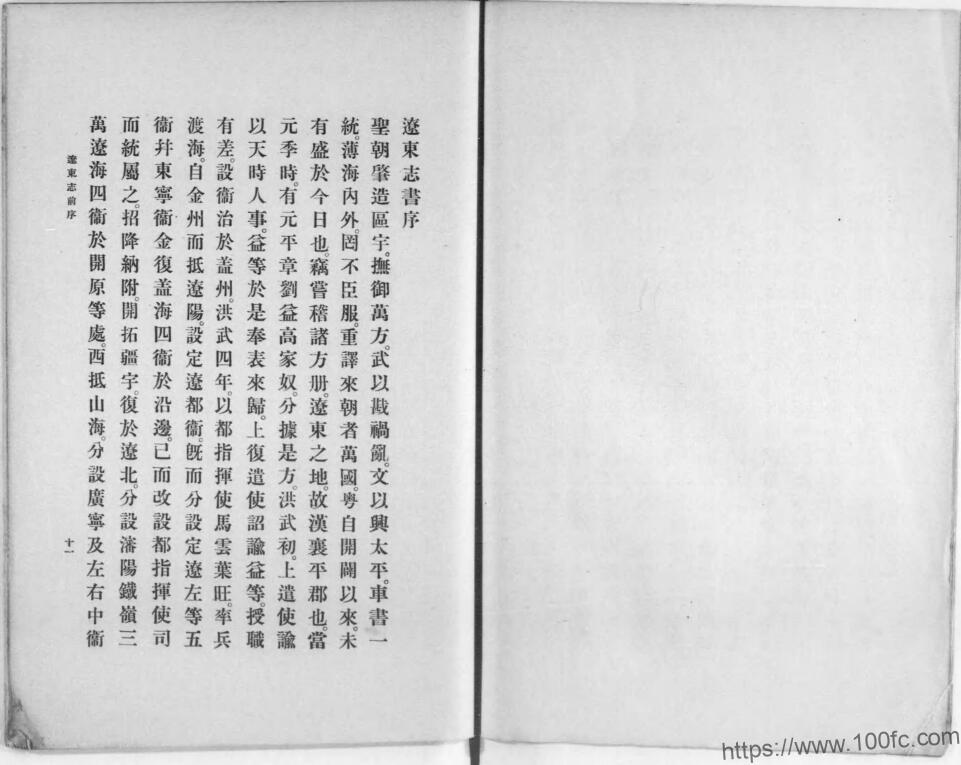 遼東志書序
聖朝肇造區宇。撫御萬方。武以戡禍亂。文以興太平。車書一
統。薄海內外。罔不臣服。重譯來朝者萬國。粵自開闢以來。未
有盛於今日也。竊嘗稽諸方册。遼東之地。故漢襄平郡也。當
元季時。有元平章劉益高家奴。分據是方。洪武初。上遣使諭
以天時人事。益等於是奉表來歸。上復遣使詔諭益等。授職
有差。設衞治於盖州。洪武四年。以都指揮使馬雲葉旺。率兵
渡海。自金州而抵遼陽。設定遼都衞。旣而分設定遼左等五
衞幷東寧衞金復盖海四衞於沿邊。已而改設都指揮使司
而統屬之。招降納附。開拓疆宇。復於遼北。分設瀋陽鐵嶺三
萬遼海四衞於開原等處。西抵山海。分設廣寧及左右中衞
遼東志前序
十一
https://www.100fc.com